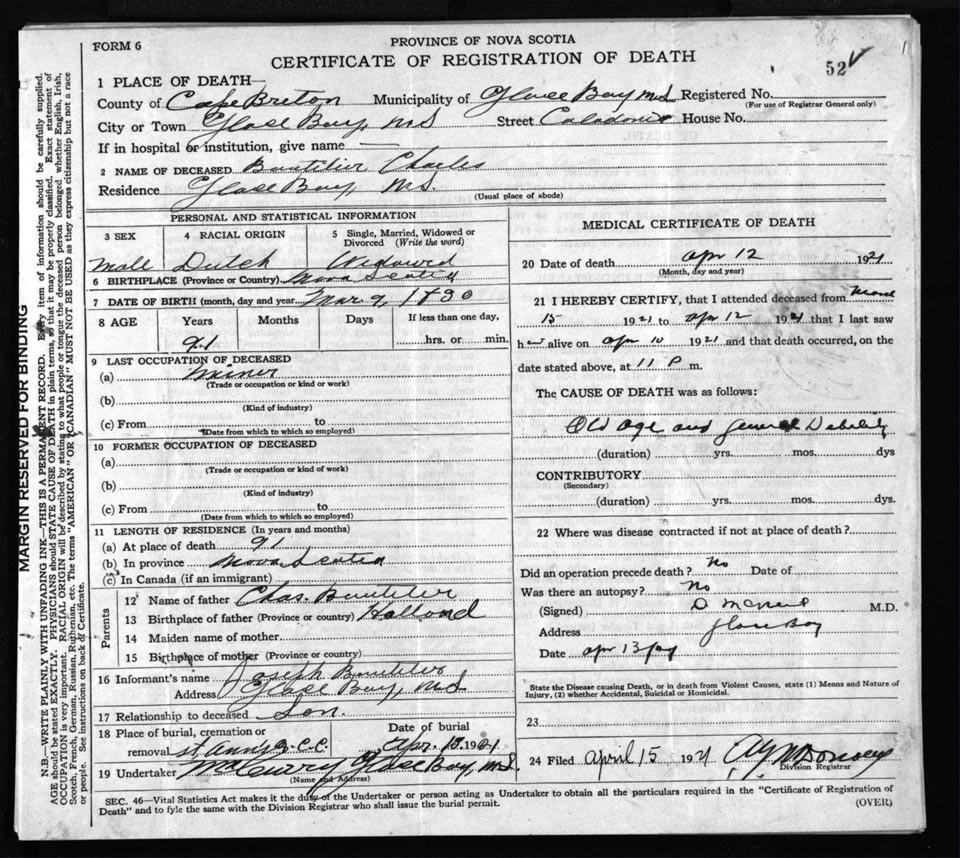 FORM 6
PROVINCE OF NOVA SCOTIA
CERTIFICATE OF REGISTRATION OF DEATH
52
1 PLACE OF DEATH—
County of Cape Breton Municipality of Glace Bay N.S Registered No.
(For use of Registrar General only)
City or Town Glace Bay, N.S Street Caledonia House No.
If in hospital or institution, give name
2 NAME OF DECEASED Boutilier Charles
Residence Glace Bay N.S.
(Usual place of abode)
PERSONAL AND STATISTICAL INFORMATION
3 SEX 4 RACIAL ORIGIN 5 Single, Married, Widowed or Divorced (Write the word)
Male Dutch Widowed
6 BIRTHPLACE (Province or Country) Nova Scotia
7 DATE OF BIRTH (month, day and year) Mar 9, 1830
8 AGE Years Months Days If less than one day,
91 hrs. or min.
9 LAST OCCUPATION OF DECEASED
(a) Miner
(Trade or occupation or kind or work)
(b)
(Kind of industry)
(c) From to
(Date from which to which so employed)
10 FORMER OCCUPATION OF DECEASED
(a)
(Trade or occupation or kind of work)
(b)
(Kind of industry)
(c) From to
(Date from which to which so employed)
11 LENGTH OF RESIDENCE (In years and months)
(a) At place of death 91
(b) In province Nova Scotia
(c) In Canada (if an immigrant)
Parents
12 Name of father Chas. Boutilier
13 Birthplace of father (Province or country) Holland
14 Maiden name of mother
15 Birthplace of mother (Province or country)
16 Informant's name Joseph Boutilier
Address Glace Bay, N.S
17 Relationship to deceased Son.
18 Place of burial, cremation or removal Date of burial
St Anns R.C.C. Apr. 15, 1921
19 Undertaker McCurry Glace Bay, N.S.
(Name and Address)
MEDICAL CERTIFICATE OF DEATH
20 Date of death Apr 12 1921
(Month, day and year)
21 I HEREBY CERTIFY, that I attended deceased from March
15 1921 to Apr 12 1921 that I last saw
h alive on Apr 10 1921 and that death occurred, on the
date stated above, at 11 P m.
The CAUSE OF DEATH was as follows:
Old Age and General Debility
(duration) yrs. mos. dys
CONTRIBUTORY
(Secondary)
(duration) yrs. mos. dys.
22 Where was disease contracted if not at place of death?
Did an operation precede death? No Date of
Was there an autopsy? No
(Signed) M.D.
Address Glace Bay
Date Apr 13
State the Disease causing Death, or in death from Violent Causes, state (1) Means and Nature of Injury, (2) whether Accidental, Suicidal or Homicidal.
23
24 Filed April 15 1921
Division Registrar
SEC. 46—Vital Statistics Act makes it the duty of the Undertaker or person acting as Undertaker to obtain all the particulars required in the "Certificate of Registration of
Death" and to fyle the same with the Division Registrar who shall issue the burial permit.
(OVER)
MARGIN RESERVED FOR BINDING
N.B.—WRITE PLAINLY WITH UNFADING INK—THIS IS A PERMANENT RECORD. Every item of information should be carefully supplied.
AGE should be stated EXACTLY. PHYSICIANS should STATE CAUSE OF DEATH in plain terms, so that it may be properly classified. Exact statement of
OCCUPATION is very important. RACIAL ORIGIN will be described by stating to what people or tongue the deceased person belonged whether English, Irish,
Scotch, French, German, Russian, Ruthenian, etc. The terms "AMERICAN" OR "CANADIAN" MUST NOT BE USED as they express citizenship but not a race
or people. See instructions on back of Certificate.